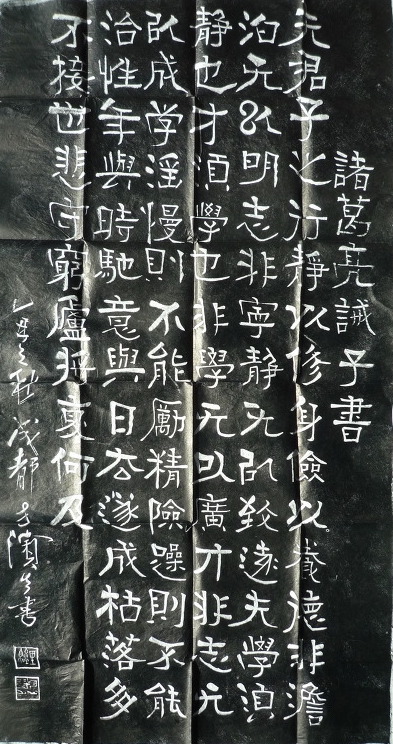 諸葛亮誡子書
夫君子之行靜以修身儉以養德非澹
泊无以明志非寧靜无以致遠夫學須
靜也才須學也非學无以廣才非志无
以成学滛慢則不能勵精險躁則不能
治性年與時馳意與日去遂成枯落多
不接世悲守窮廬將复何及
之秋成都書